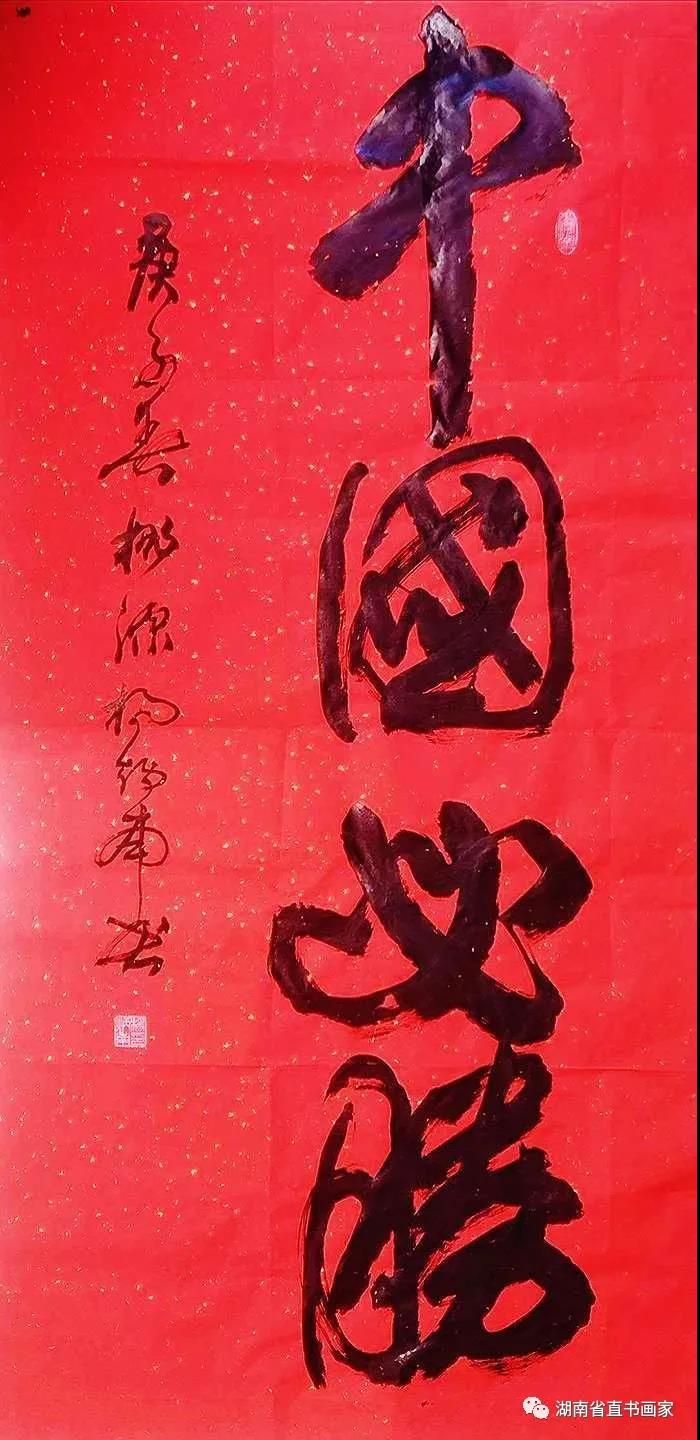 中國必勝
庚子春桃源楊錫南書
湖南省直书画家